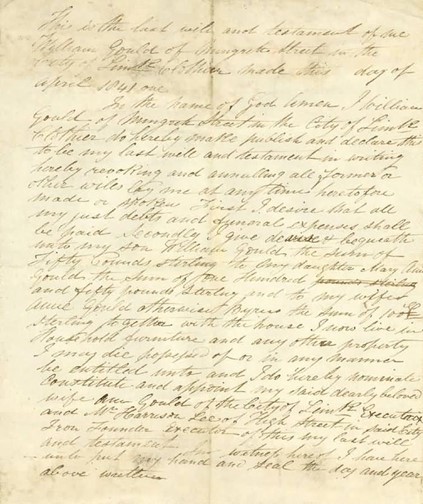 This is the last will and testament of me
William Gould of Mungret Street in the
City of Limk Clothier made this day of
April 1841 one
In the name of God Amen I William
Gould of Mungret Street in the City of Limk
Clothier do hereby make publish and declare this
to be my last will and testament in writing
hereby revoking and annulling all former or
other wills by me at any time heretofore
made or spoken First I desire that all
my just debts and funeral expenses shall
be paid Secondly I give devise & bequeath
unto my son William Gould the sum of
Fifty Pounds sterling to my daughter Mary Ann
Gould the sum of one Hundred pounds sterling
and fifty pounds sterling and to my wife
Anne Gould otherwise the sum of 100£
sterling together with the house I now live in
Household furniture and any other property
I may die possessed of or in any manner
be entitled unto and I do hereby nominate
Constitute and appoint my said dearly beloved
wife Ann Gould of the City of Limk Executrix
and Mr Harrison Lee of High Street in said City
Iron Founder executor of this my last will
and testament In witness hereof I have here
unto put my hand and seal the day and year
above written